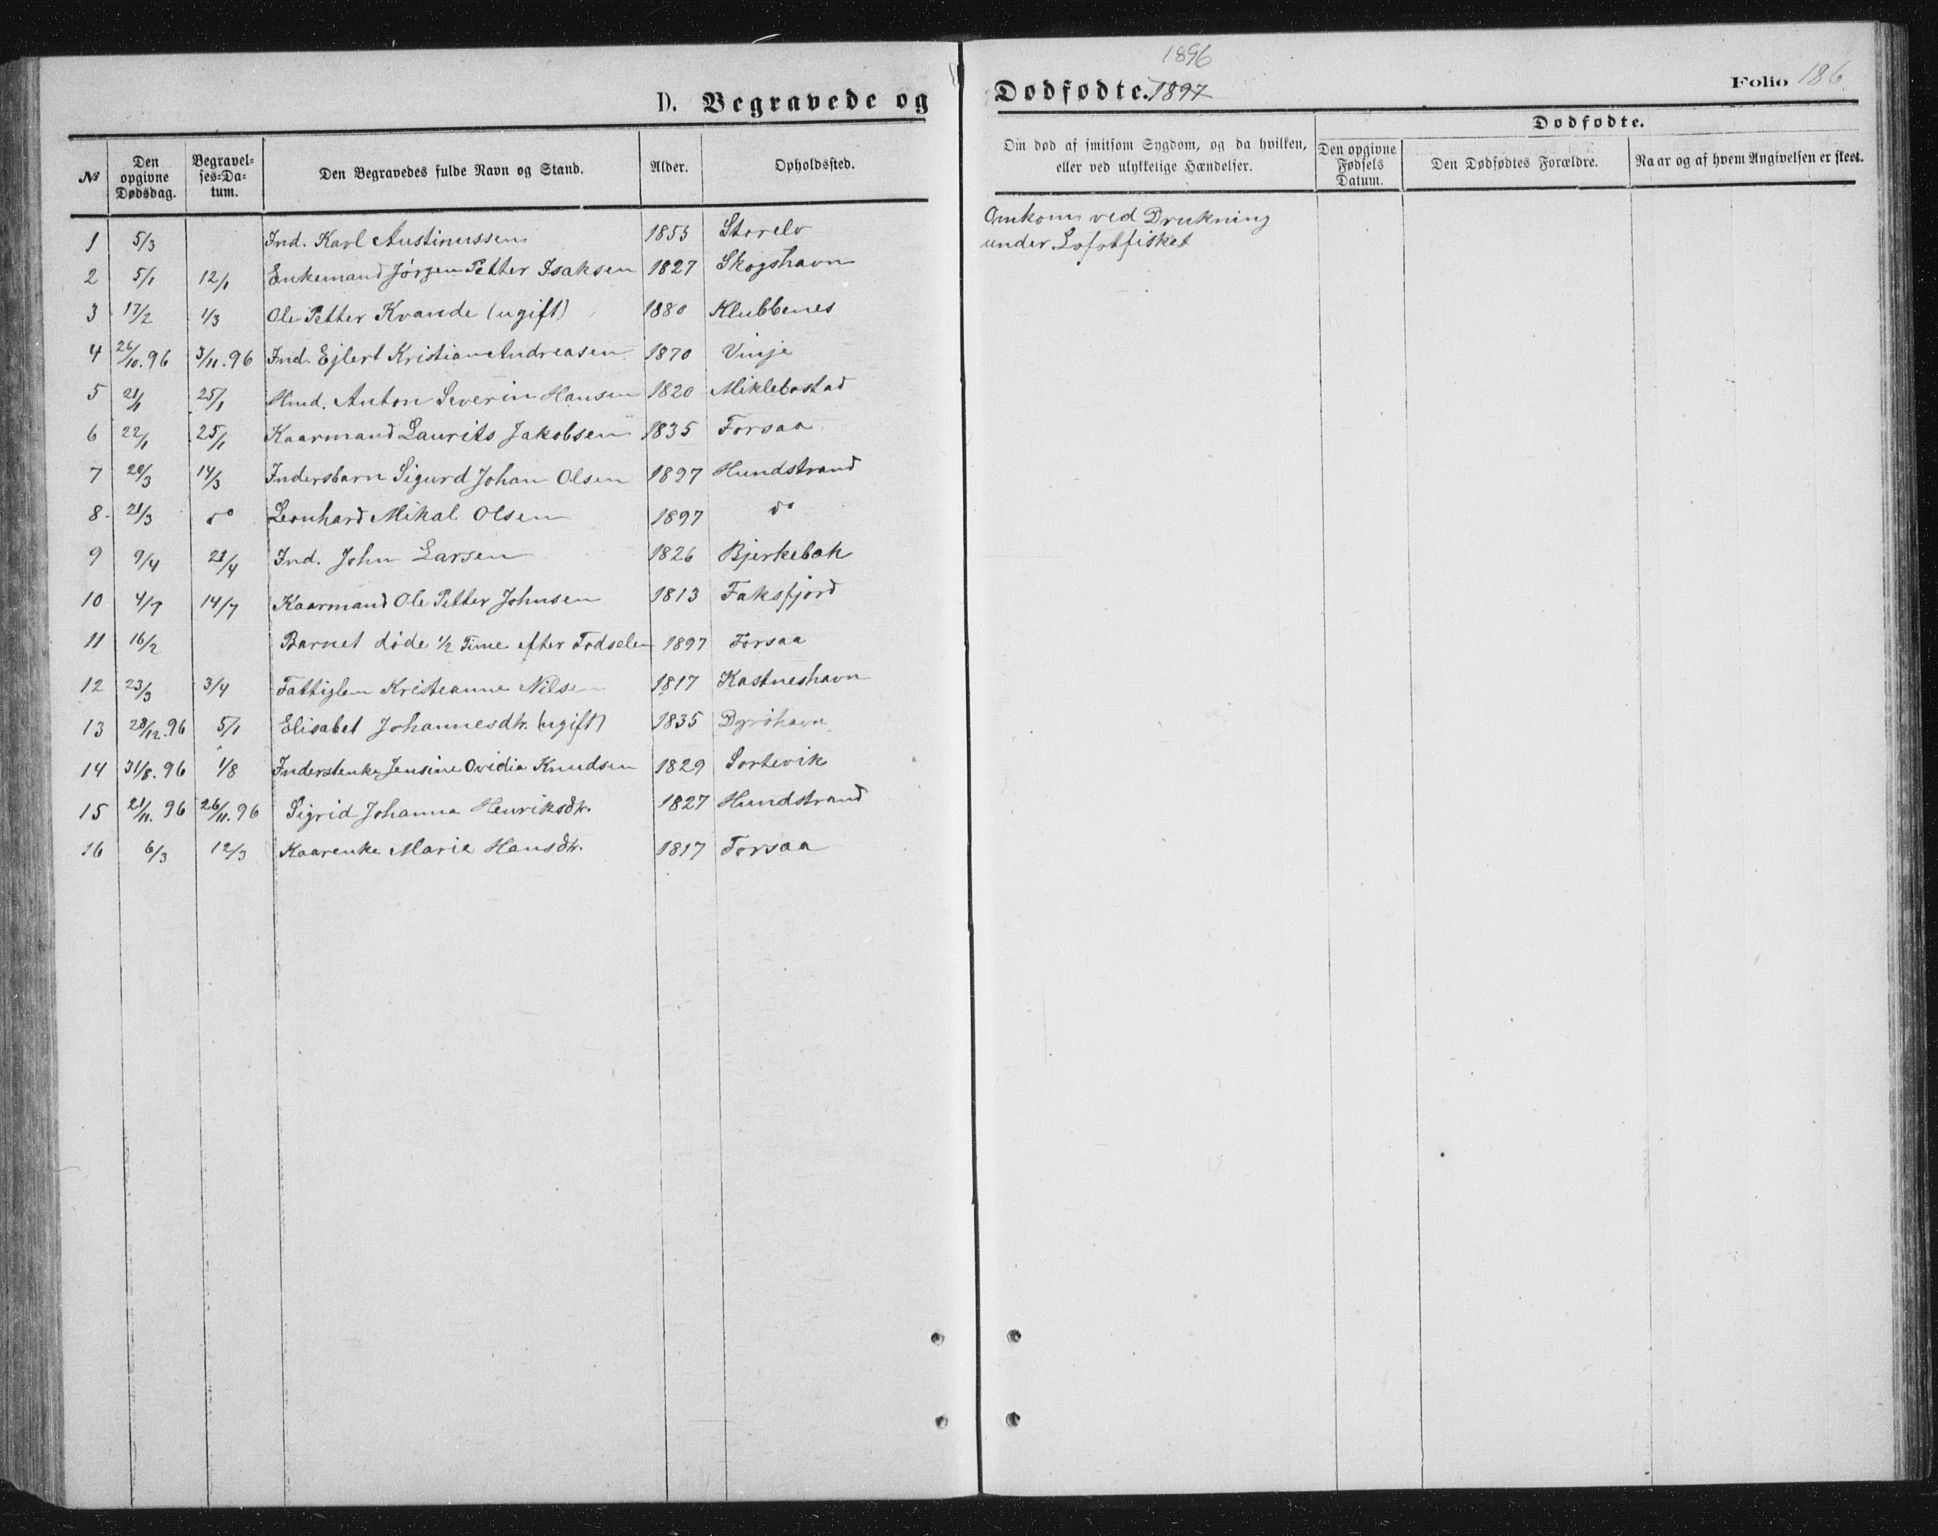 1896
D. Begravede og Dødfødte. 1897 Folio 186.
№ Den opgivne Dødsdag. Begravelses-Datum. Den Begravedes fulde Navn og Stand. Alder. Opholdssted. Om død af smitsom Sygdom, og da hvilken, eller ved ulykkelige Hændelser. Dødfødte. Den opgivne Fødsels Datum. Den Dødfødtes Forældre. Naar og af hvem Angivelsen er skeet.
1 5/3 Ind. Karl Austinussen 1853 Storelv Omkom ved Drukning
under Lofotfisket
2 5/1 12/1 Enkemand Jørgen Petter Isaksen 1827 Skogshavn
3 17/2 1/3 Ole Petter Kvande (ugift) 1880 Klubbenes
4 26/10.96 3/11.96 Ind. Ejlert Kristian Andreasen 1870 Vinje
5 21/1 25/1 Hmd. Anton Severin Hansen 1820 Miklebostad
6 22/1 25/1 Kaarmand Laurits Jakobsen 1835 Forsaa
7 20/3 14/3 Indersbarn Sigurd Johan Olsen 1897 Hundstrand
8 21/3 do Leonhard Mikal Olsen 1897 do
9 9/4 21/4 Ind. John Larsen 1826 Bjerkebak
10 4/7 14/7 Kaarmand Ole Petter Johnsen 1813 Faksfjord
11 16/2 Barnet døde 1/2 Time efter Fødselen 1897 Forsaa
12 23/3 3/4 Fattiglem Kristianne Nilsen 1817 Kastneshavn
13 28/12.96 5/1 Elisabet Johannesdtr. (ugift) 1835 Dyröhavn
14 31/8.96 1/8 Indersenke Jensine Ovidia Knudsen 1829 Sortevik
15 21/11.96 26/11.96 Sigrid Johanna Henriksdtr. 1827 Hundstrand
16 6/3 12/3 Kaarenke Marie Hansdtr. 1817 Forsaa